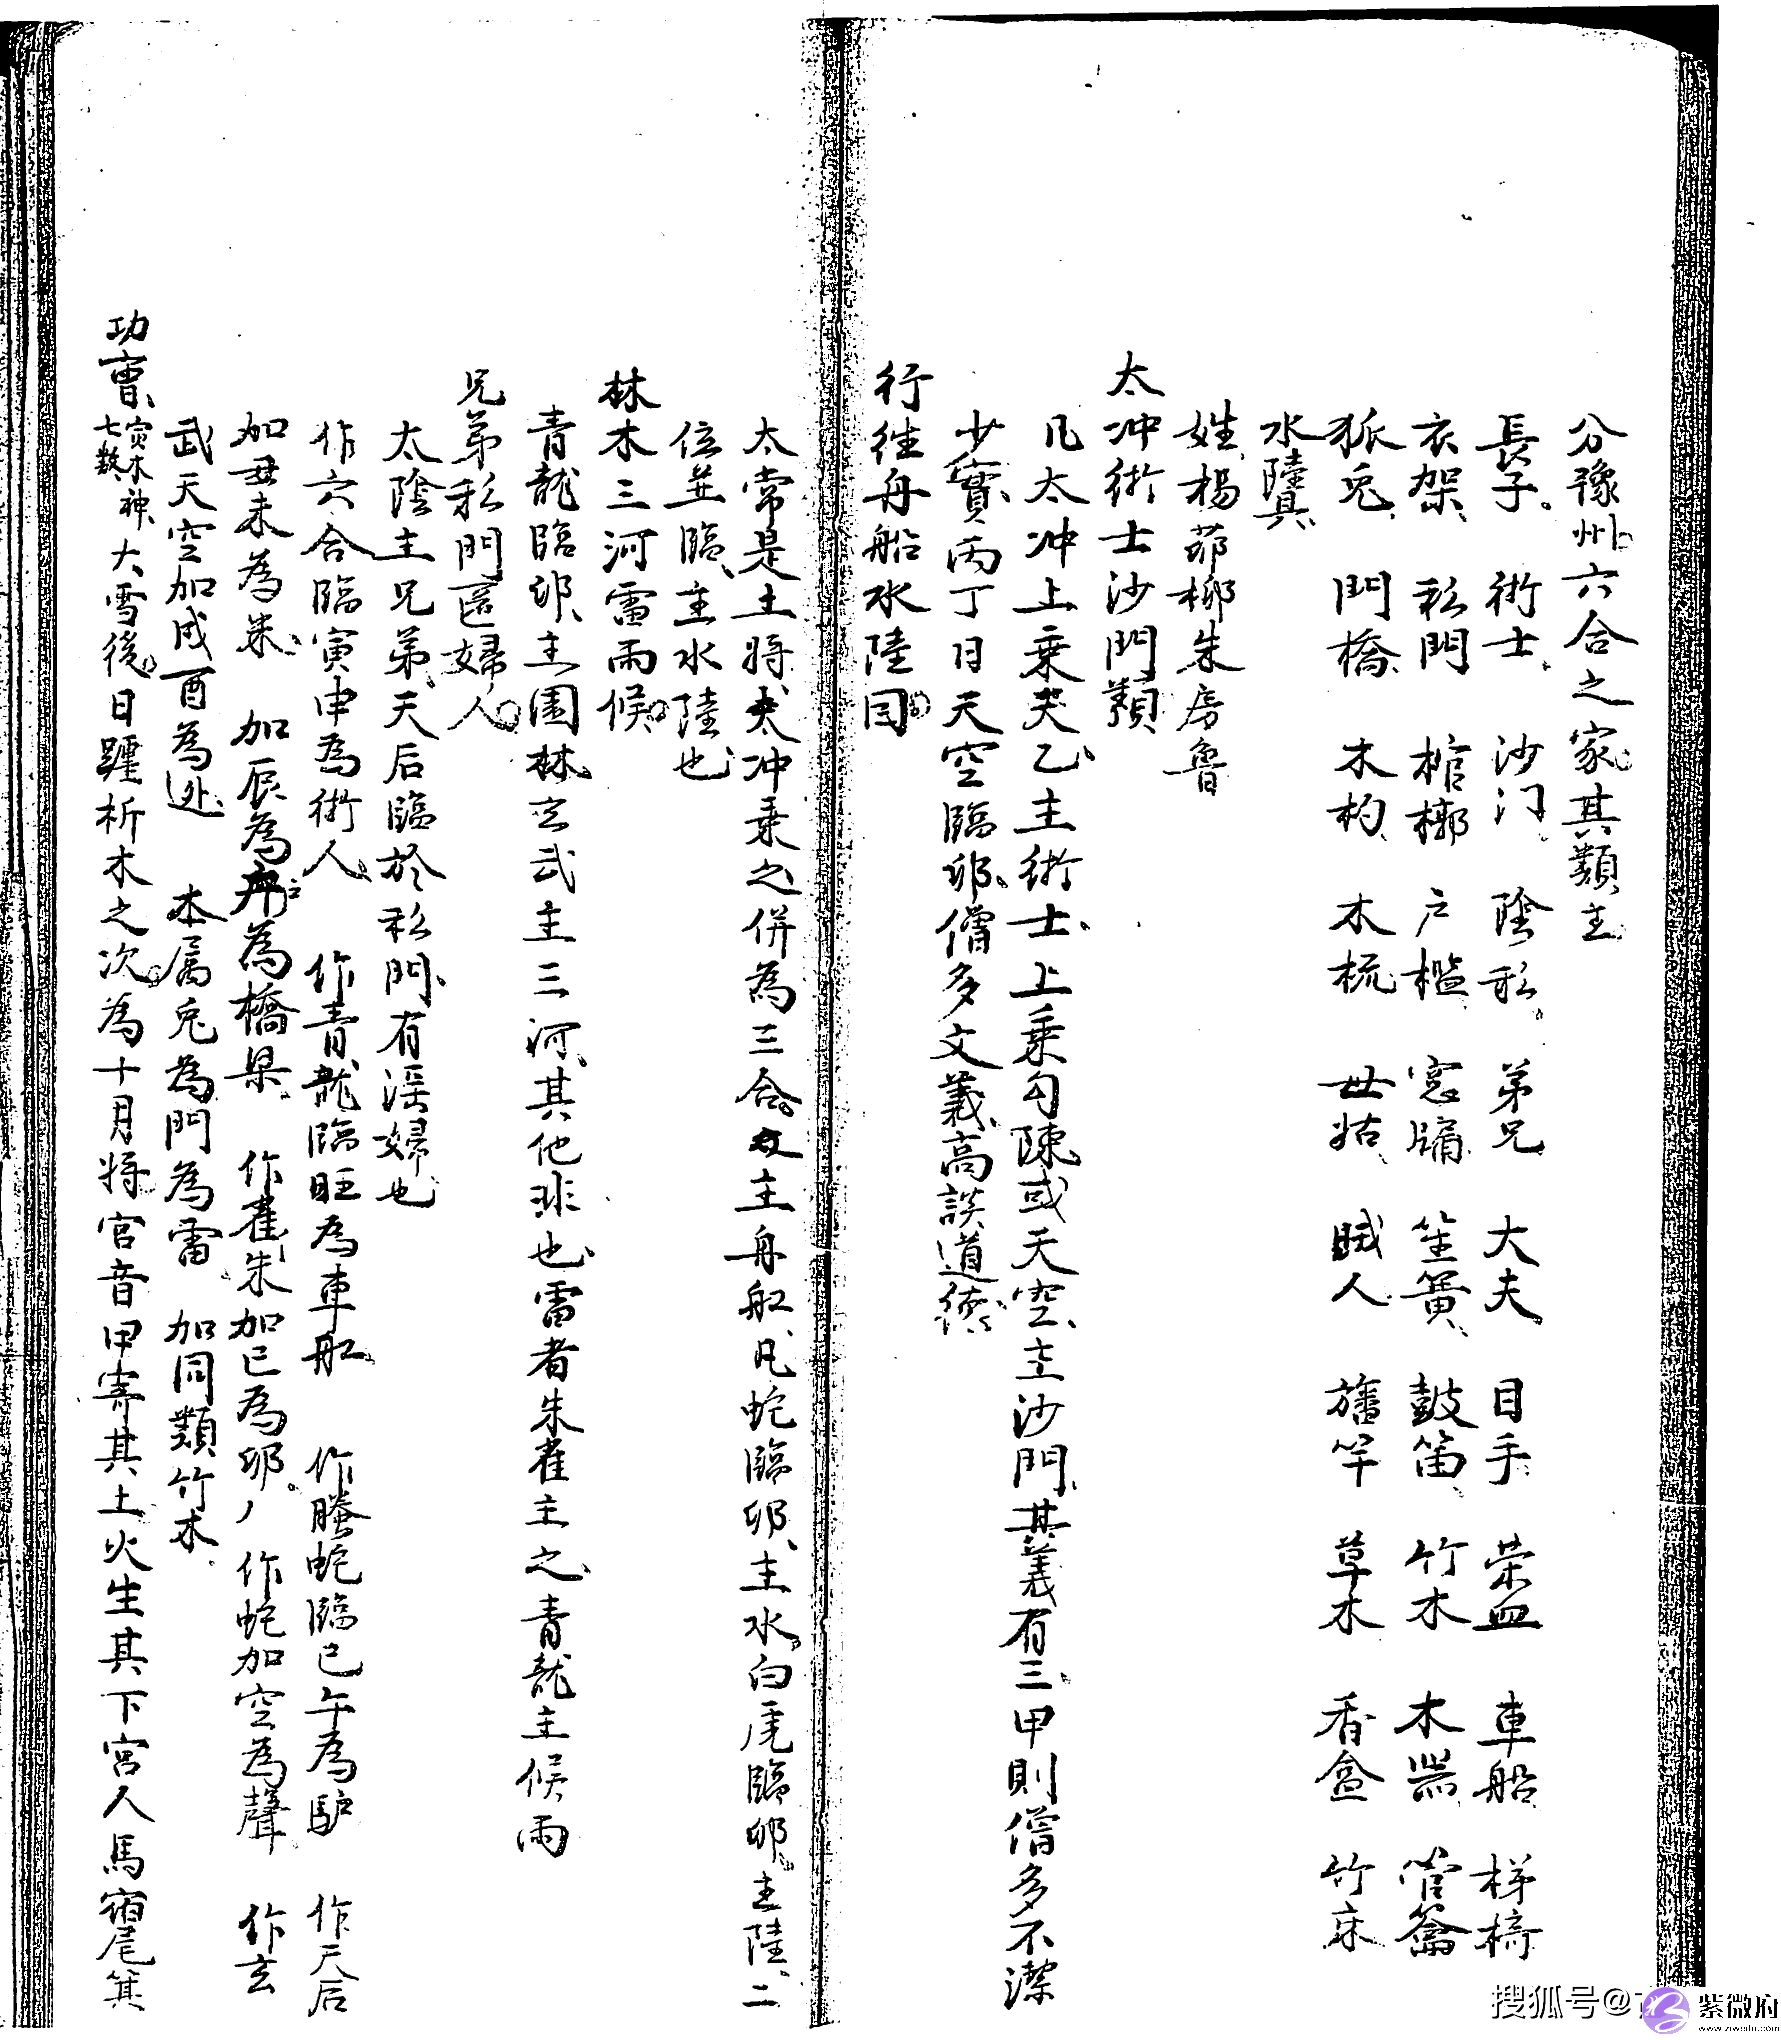 分豫州六合之家其類主
長子 術士 沙门 陰私 弟兄 大夫 目手 荣血 車船 梯椅
衣架 私門 棺槨 户檻 窓牖 笙簧 鼓笛 竹木 木器 管籥
狐兎 門橋 木杓 木梳 母姑 賊人 旛竿 草木 香盒 竹床
水陸具
姓楊茆柳朱房魯
太冲術士沙門類
凡太冲上乗天乙主術士上乗勾陳或天空主沙門其義有三甲則僧多不潔
少實丙丁日天空臨卯僧多文義高談道德
行徃舟船水陸同
太常是土將太冲乗之併為三合主舟船凡蛇臨卯主水白虎臨卯主陸二
位並臨主水陸也
林木三河雷雨候
青龍臨卯主園林玄武主三河其他非也雷者朱雀主之青龍主候雨
兄弟私門匿婦人
太陰主兄弟天后臨於私門有淫婦也
作六合臨寅申為術人 作青龍臨旺為車船 作螣蛇臨巳午為馿 作天后
加丑未為 加辰為 為橋梁 作雀朱加巳為卯 作蛇加空為聲 作玄
武天空加戌酉為 本属兎為門為雷 加同類竹木
功曹寅木神七数大雪後日躔析木之次為十月將宫音甲寄其土火生其下宫人馬宿尾箕
搜狐号@
紫微府
www.ziweifu.com